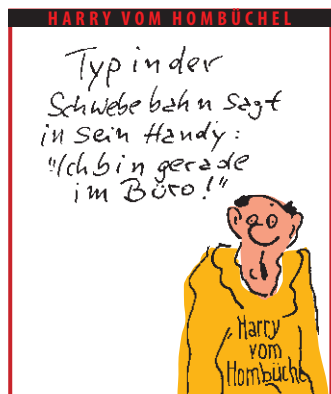 HARRY VOM HOMBÜCHEL
Typ in der
Schwebebahn sagt
in sein Handy:
"Ich bin gerade
im Büro!"
Harry
vom
Hombüchel